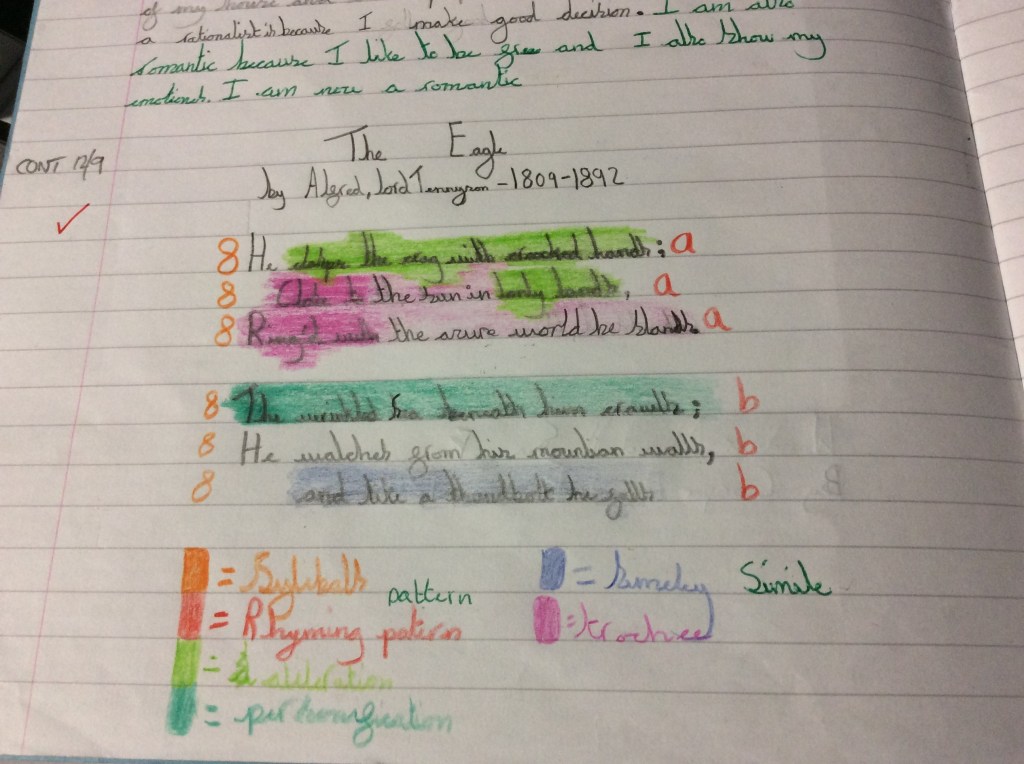 of my house and
a rationalist is because I make good decision. I am also
romantic because I like to be free and I also show my
emotions. I am now a romantic
The Eagle
CONT 12/9
by Alfred, lord Tennyson - 1809-1892
8 He clasps the crag with crooked hands; a
8 Close to the sun in lonely lands, a
8 Ring'd with the azure world he stands a
8 The wrinkled sea beneath him crawls; b
8 He watches from his mountian walls, b
8 and like a thundbolt he falls b
= Syleballs pattern
= Simeley Simile
= Rhyming patern
= trochee
= aliteration
= personification